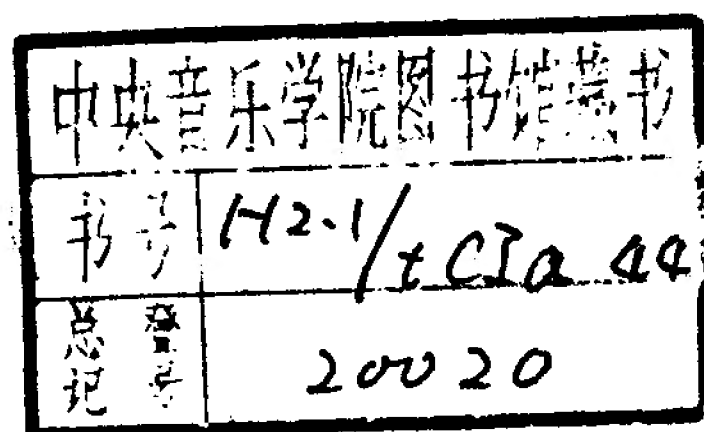 中央音乐学院图书馆藏书
书号 H2.1/tCIa 44
总登记号 20020